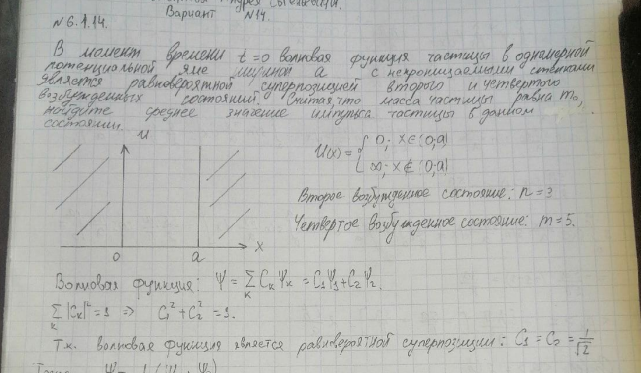 Вариант №14.
№6.1.14.
В момент времени t=0 волновая функция частицы в одномерной
потенциальной яме шириной a с непроницаемыми стенками
является равновероятной суперпозицией второго и четвертого
возбужденных состояний. Считая, что масса частицы равна m₀,
найдите среднее значение импульса частицы в данном
состоянии.
U
U(x) = { 0; x∈(0,a)
∞; x∉(0,a)
Второе возбужденное состояние: n=3
Четвертое возбужденное состояние: m=5.
0 a x
Волновая функция: Ψ = Σ_k C_kΨ_k = C₁Ψ₁+C₂Ψ₂.
Σ_k |C_k|²=1 ⇒ C₁²+C₂²=1.
Т.к. волновая функция является равновероятной суперпозиции: C₁ = C₂ = 1/√2